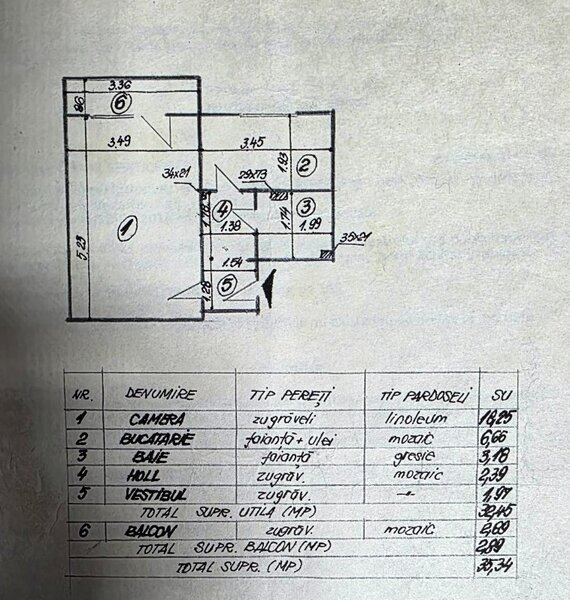 3.36
86
6
3.49
3.45
1.93
2
34x21
29x73
1.70
4
1.38
1.74
3
1.99
1
5.23
35x21
1.54
1.28
5
NR. DENUMIRE TIP PEREȚI TIP PARDOSELI SU
1 CAMERA zugrăveli linoleum 18,25
2 BUCATARIE faianță + ulei mozaic 6,66
3 BAIE faianță gresie 3,18
4 HOLL zugrăv. mozaic 2,39
5 VESTIBUL zugrăv. -"- 1,97
TOTAL SUPR. UTILA (MP) 32,45
6 BALCON zugrăv. mozaic 2,89
TOTAL SUPR. BALCON (MP) 2,89
TOTAL SUPR. (MP) 35,34